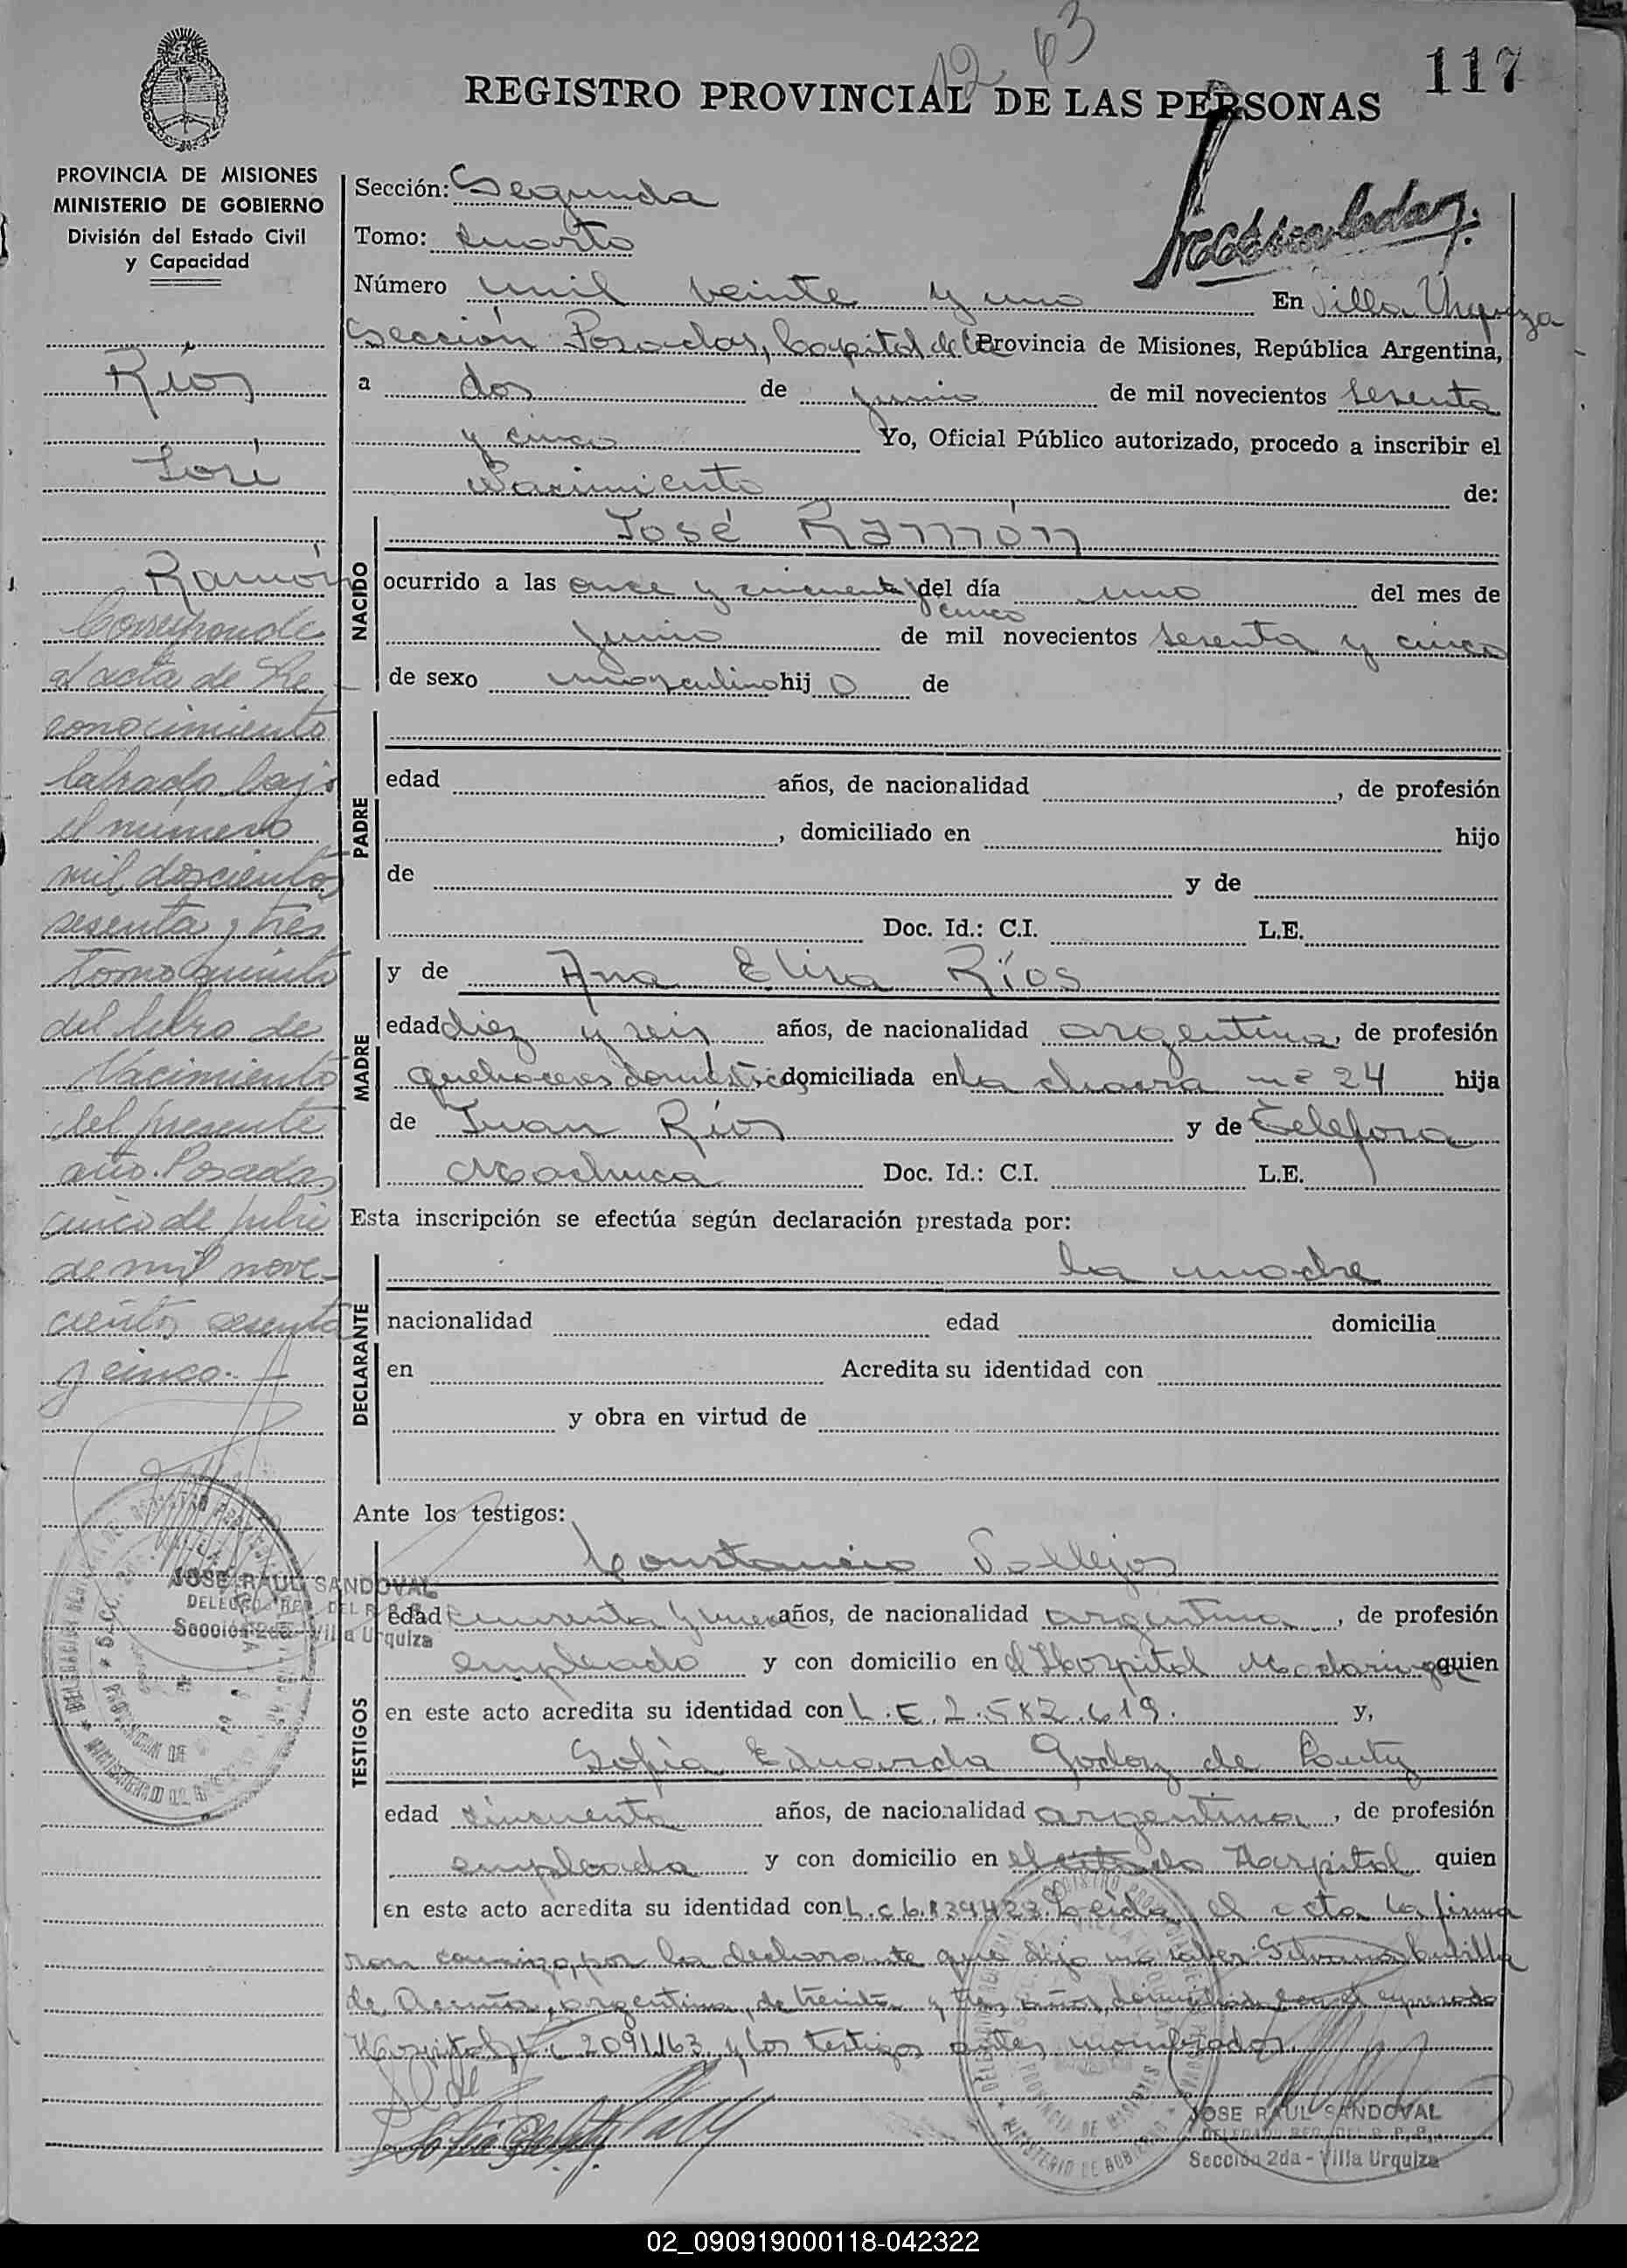 12 63
117
REGISTRO PROVINCIAL DE LAS PERSONAS
PROVINCIA DE MISIONES
MINISTERIO DE GOBIERNO
División del Estado Civil
y Capacidad
Ríos
José
Ramón
Corresponde
al acta de Re
conocimiento
labrada bajo
el número
mil doscientos
sesenta y tres
Tomo quinto
del libro de
Nacimiento
del presente
año. Posadas
cinco de julio
de mil nove-
cientos sesenta
y cinco.-
JOSE RAUL SANDOVAL
DELEGADO REG. DEL R. P. P.
Sección 2da - Villa Urquiza
Sección: Segunda
Tomo: Cuarto
Número mil veinte y uno En Villa Urquiza
Sección Posadas, Capital de la Provincia de Misiones, República Argentina,
a dos de junio de mil novecientos sesenta
y cinco Yo, Oficial Público autorizado, procedo a inscribir el
Nacimiento de:
NACIDO
José Ramón
ocurrido a las once y cincuenta y del día uno del mes de
cinco
junio de mil novecientos sesenta y cinco
de sexo masculino hijo de
PADRE
edad años, de nacionalidad , de profesión
, domiciliado en hijo
de y de
Doc. Id.: C.I. L.E.
MADRE
y de Ana Elisa Ríos
edad diez y seis años, de nacionalidad argentina, de profesión
quehaceres domésticos, domiciliada en La chacra nº 24 hija
de Juan Ríos y de Telefora
Machuca Doc. Id.: C.I. L.E.
Esta inscripción se efectúa según declaración prestada por:
DECLARANTE
la madre
nacionalidad edad domicilia
en Acredita su identidad con
y obra en virtud de
Ante los testigos:
TESTIGOS
Constancio Vallejos
edad años, de nacionalidad argentina, de profesión
empleado y con domicilio en el Hospital Madariaga quien
en este acto acredita su identidad con L.E. 2.582.619. y,
Sofía Eduarda Godoy de
edad cincuenta años, de nacionalidad argentina, de profesión
empleada y con domicilio en el citado Hospital quien
en este acto acredita su identidad con L.C 6.839423. Leída el acta la firma
ron conmigo, por la declarante que dijo no saber: Silvana
de Acuña, argentina, de treinta y tres años, domiciliada en el expresado
Hospital, L.C 2091163 y los testigos antes nombrados.
JOSE RAUL SANDOVAL
DELEGADO REG. DEL R. P. P.
Sección 2da - Villa Urquiza
02_090919000118-042322